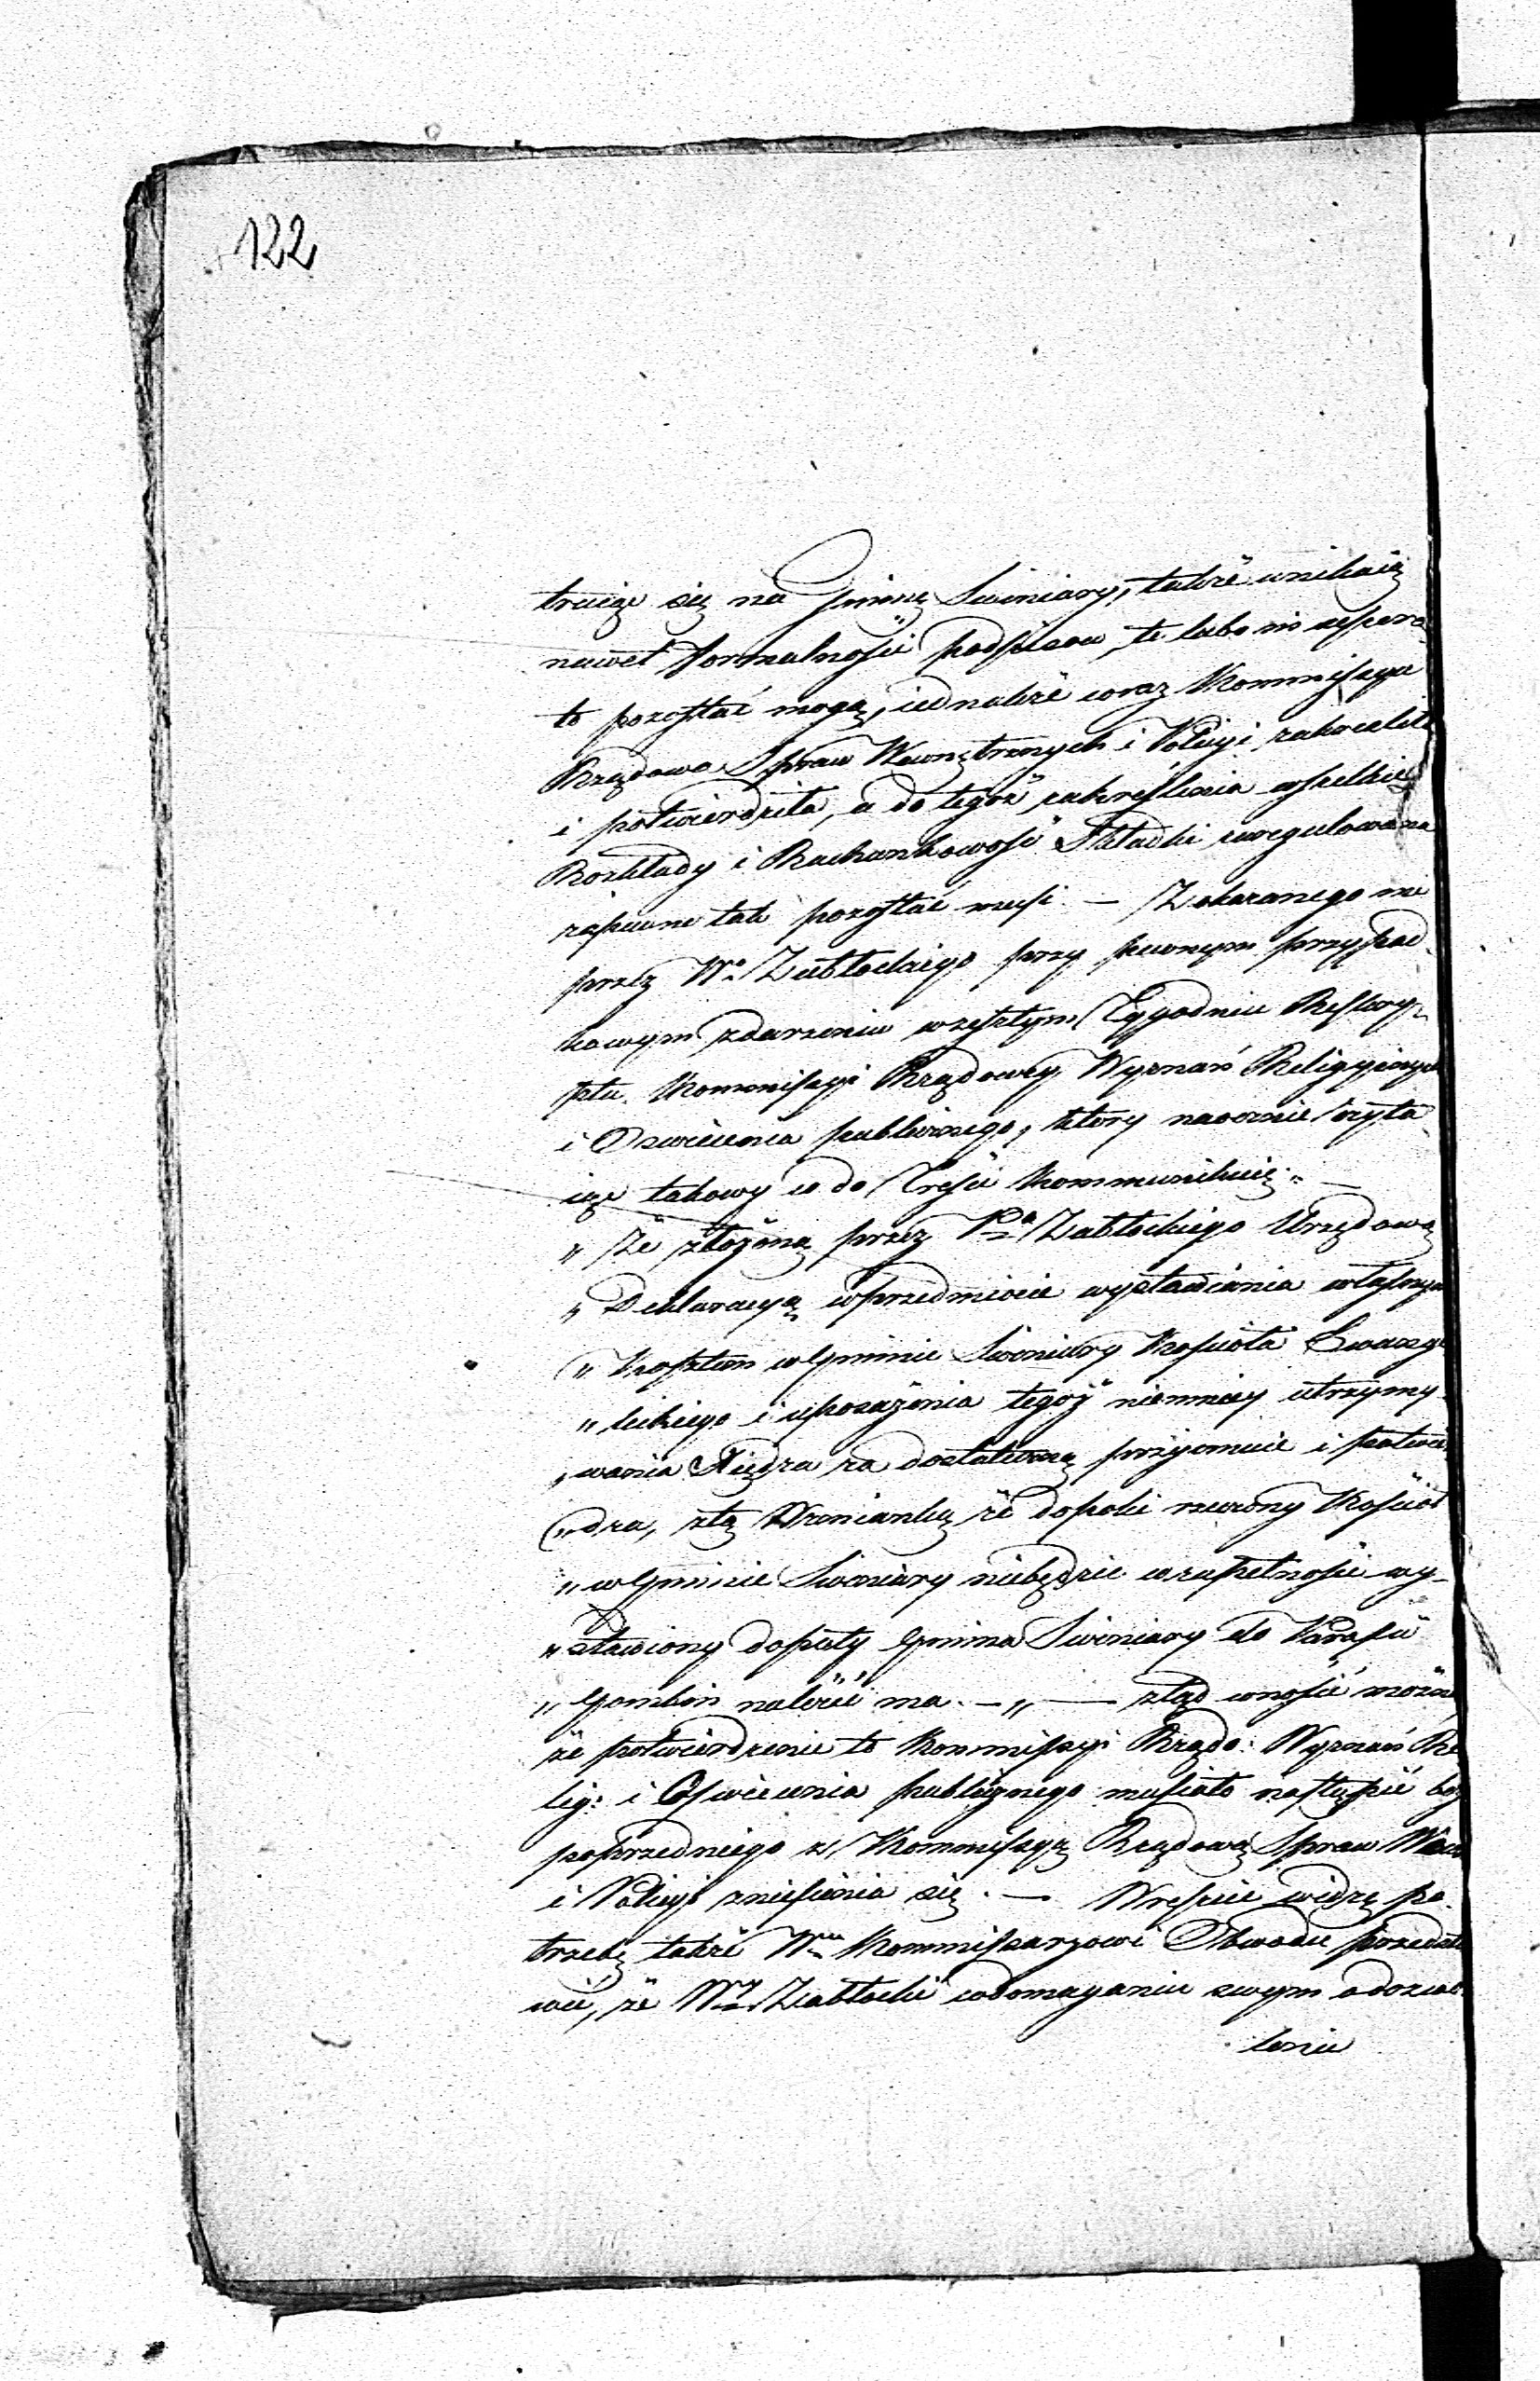 122
truiąc się na Gminę Swiniary, także unikaią
nawet formalności podpisow, te lubo nie
to pozostać mogą, iednakże coraz Kommissya
Rządowa Spraw Wewnętrznych i Policyi
i potwierdziła, a do tegoż zakreślenia wszelkie
Rozkłady i Rachunkowość Składki uregulowana
zapewne tak pozostać musi. — Z okazanego mi
przez Wo Zabłockiego przy pewnym przypad-
kowym zdarzeniu w zeszłym Tygodniu Reskry-
ptu Kommissyi Rządowey Wyznań Religyinych
i Oswiecenia publicznego, ktory naocznie czyta-
iąc takowy co do Treści kommunikuię „ —
„ Że złożoną przez Pa Zabłockiego Urzędową
„ Deklaracyą w przedmiocie wystawienia własnym
„ Kosztem w Gminie Swiniary Kościoła Ewangie
„ lickiego i uposażenia tegoż niemniey utrzymy-
„ wania Xiędza za dostateczną przyjmuie i potwier
„ dza, z tą Wzmianką że dopoki rzeczony Kościoł
„ w Gminie Swiniary niebędzie w zupełności wy-
„ stawiony dopoty Gmina Swiniary do Parafii
„ Gombin należeć ma. — „ — ztąd wnosić można
że potwierdzenie to Kommissyi Rządo: Wyznań Re
lig: i Oswiecenia publicznego musiało nastąpić bez
poprzedniego z Kommissyą Rządową Spraw Wew
i Policyi zniesienia się. — Wreście widzę po-
trzebę także Wmu Kommissarzowi Obwodu przedsta
wić, że Wy Zabłocki w domaganiu swym o dozwo
leniu